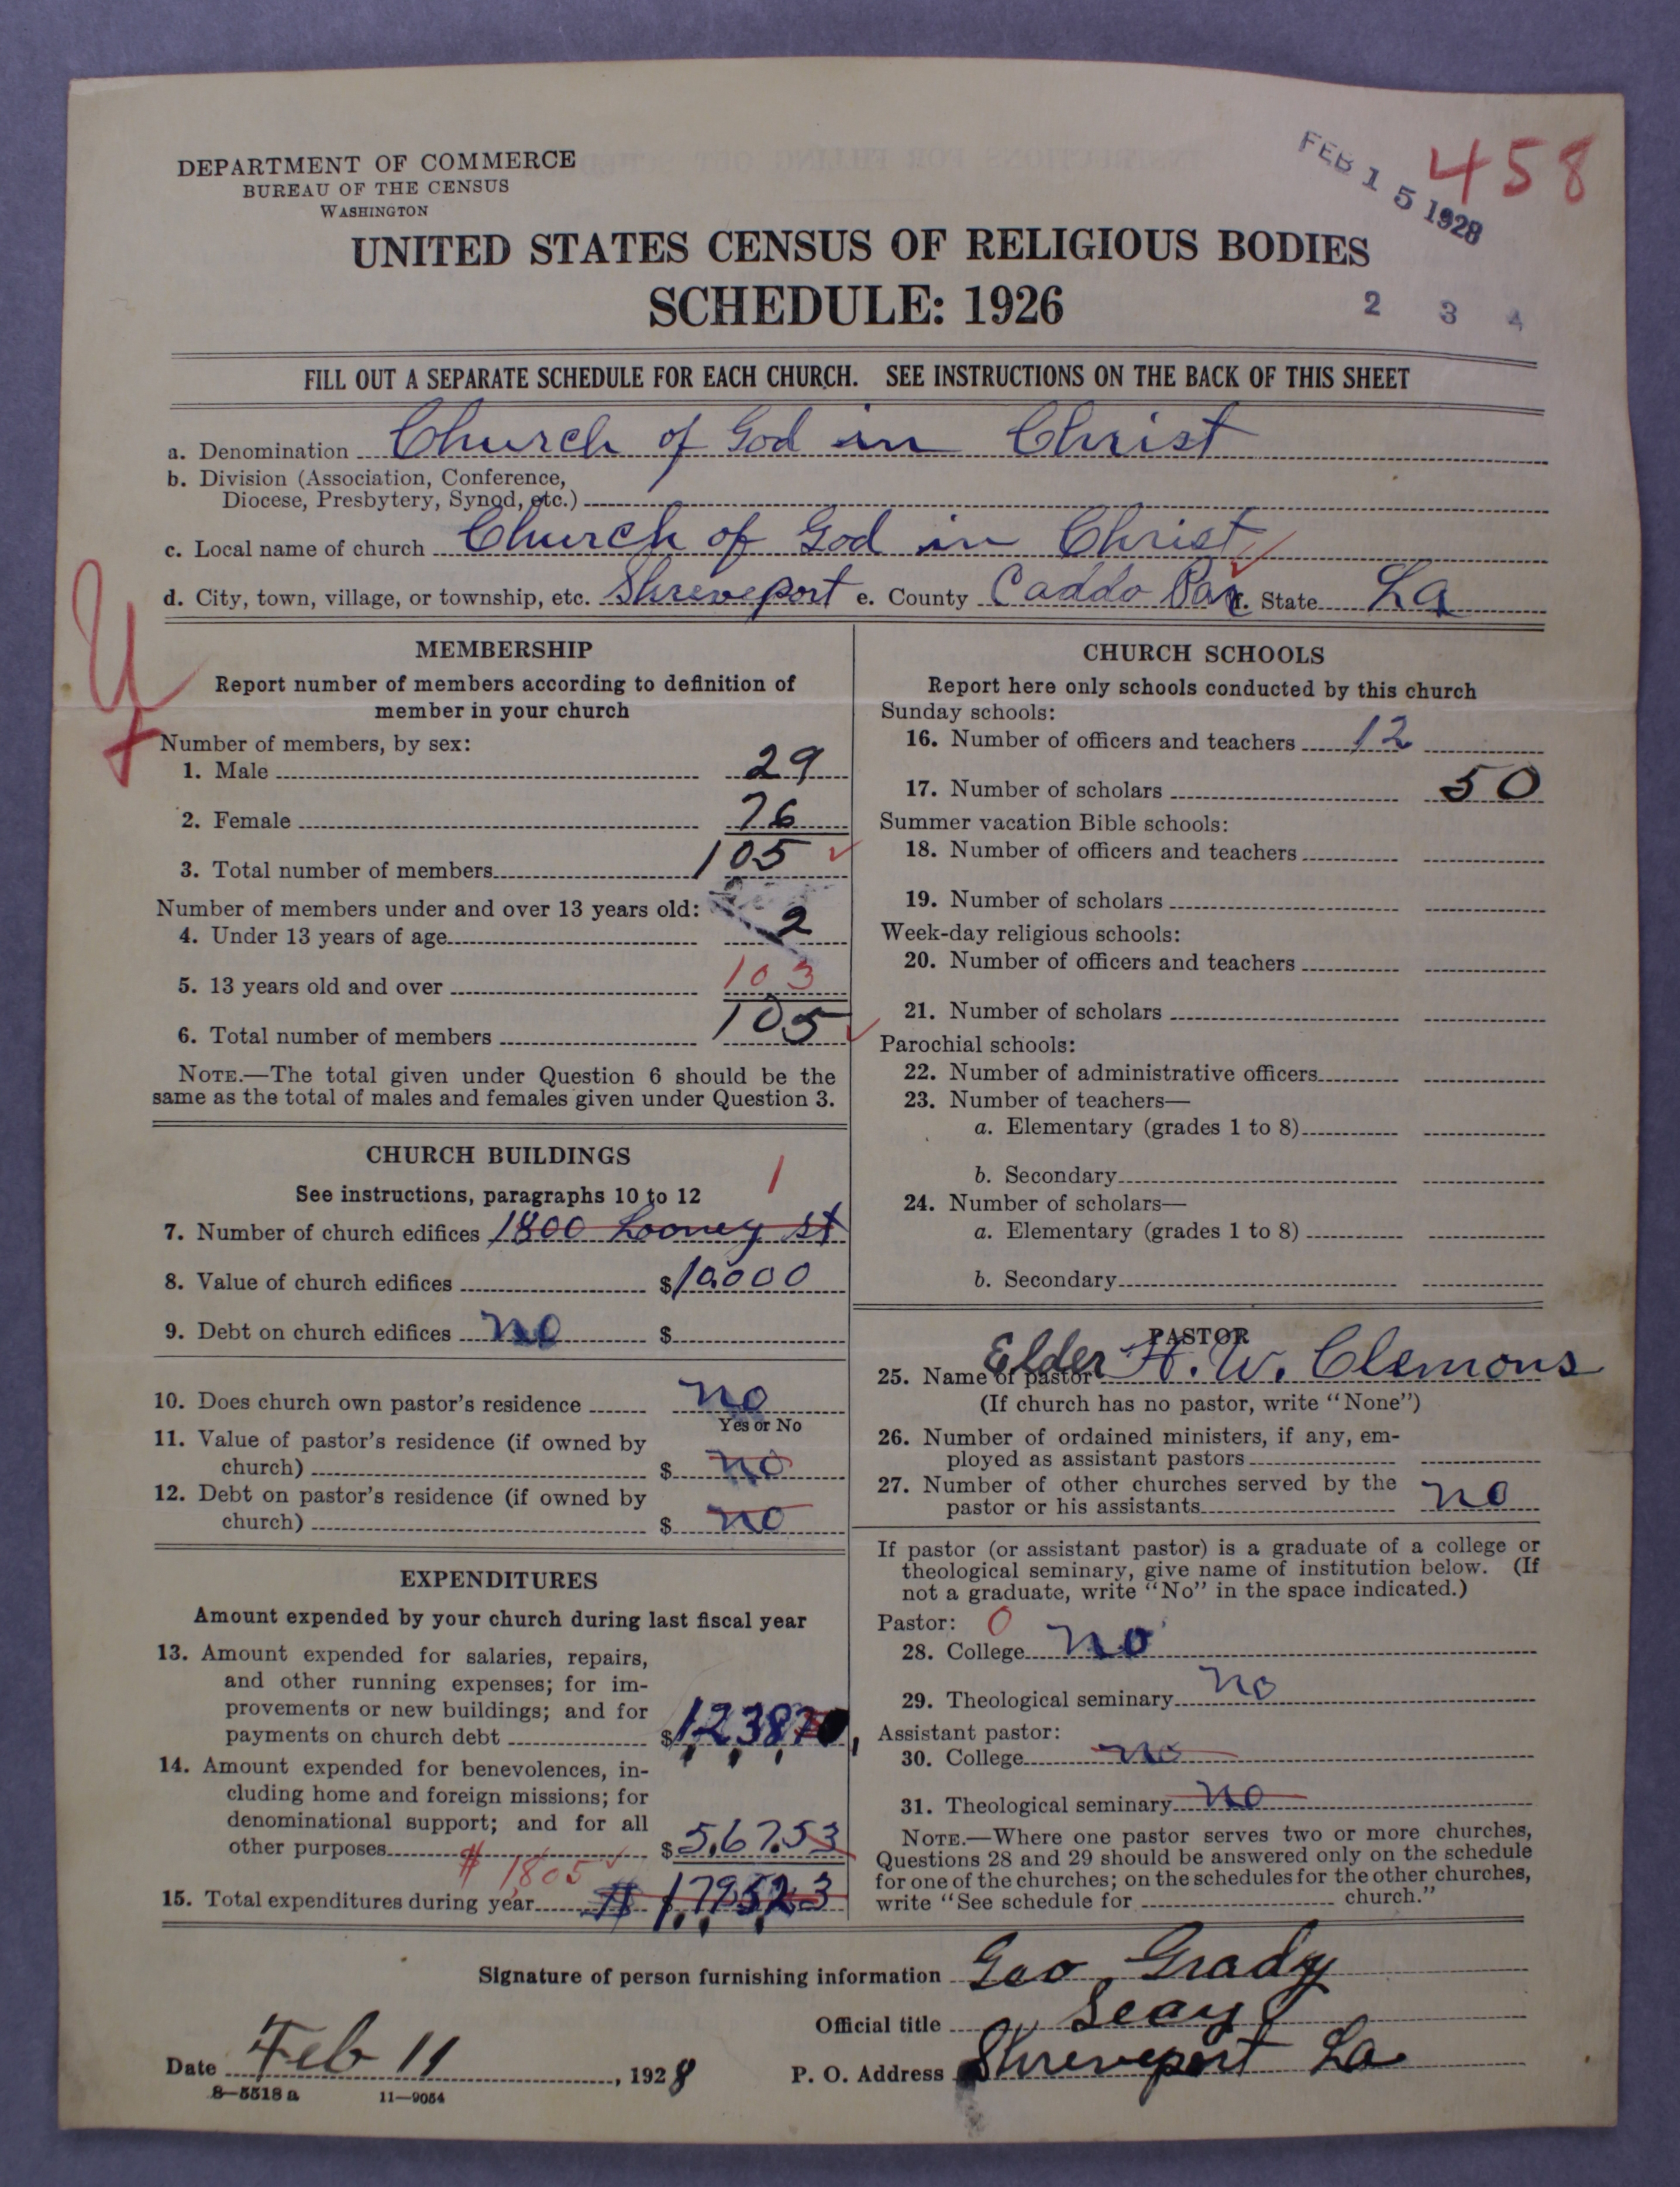 FEB 15 1928
458
DEPARTMENT OF COMMERCE
BUREAU OF THE CENSUS
WASHINGTON
UNITED STATES CENSUS OF RELIGIOUS BODIES
SCHEDULE: 1926
2 3 4
FILL OUT A SEPARATE SCHEDULE FOR EACH CHURCH. SEE INSTRUCTIONS ON THE BACK OF THIS SHEET
a. Denomination Church of God in Christ
b. Division (Association, Conference,
Diocese, Presbytery, Synod, etc.)
c. Local name of church Church of God in Christ
d. City, town, village, or township, etc. Shreveport e. County Caddo Par f. State La
MEMBERSHIP
Report number of members according to definition of
member in your church
Number of members, by sex:
1. Male 29
2. Female 76
3. Total number of members 105
Number of members under and over 13 years old:
4. Under 13 years of age 2
5. 13 years old and over 103
6. Total number of members 105
NOTE.—The total given under Question 6 should be the
same as the total of males and females given under Question 3.
CHURCH BUILDINGS
See instructions, paragraphs 10 to 12
1
7. Number of church edifices 1800 Looney st
8. Value of church edifices $10000
9. Debt on church edifices no $
10. Does church own pastor's residence no
Yes or No
11. Value of pastor's residence (if owned by
church) $ no
12. Debt on pastor's residence (if owned by
church) $ no
EXPENDITURES
Amount expended by your church during last fiscal year
13. Amount expended for salaries, repairs,
and other running expenses; for im-
provements or new buildings; and for
payments on church debt $
14. Amount expended for benevolences, in-
cluding home and foreign missions; for
denominational support; and for all
other purposes $567.53
$ 1805
15. Total expenditures during year $
CHURCH SCHOOLS
Report here only schools conducted by this church
Sunday schools:
16. Number of officers and teachers 12
17. Number of scholars 50
Summer vacation Bible schools:
18. Number of officers and teachers
19. Number of scholars
Week-day religious schools:
20. Number of officers and teachers
21. Number of scholars
Parochial schools:
22. Number of administrative officers
23. Number of teachers—
a. Elementary (grades 1 to 8)
b. Secondary
24. Number of scholars—
a. Elementary (grades 1 to 8)
b. Secondary
PASTOR
25. Name of pastor Elder H. W. Clemons
(If church has no pastor, write "None")
26. Number of ordained ministers, if any, em-
ployed as assistant pastors
27. Number of other churches served by the
pastor or his assistants no
If pastor (or assistant pastor) is a graduate of a college or
theological seminary, give name of institution below. (If
not a graduate, write "No" in the space indicated.)
Pastor: 0
28. College no
29. Theological seminary no
Assistant pastor:
30. College no
31. Theological seminary no
NOTE.—Where one pastor serves two or more churches,
Questions 28 and 29 should be answered only on the schedule
for one of the churches; on the schedules for the other churches,
write "See schedule for church."
Signature of person furnishing information Geo Grady
Official title Seay
Date Feb 11, 1928 P. O. Address Shreveport La
8—5518 a 11—9054